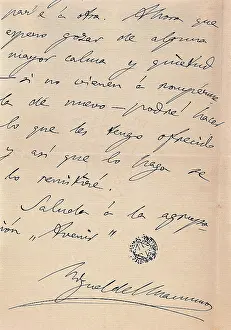 parte á otra. Ahora que
espero gozar de alguna
mayor calma y quietud
— si no vienen á rompérme
la de nuevo — podré hacer
lo que les tengo ofrecido
y así que lo haga se
lo remitiré.
Saluda á la agrupa
ción „Avenir"
Miguel de Unamuno